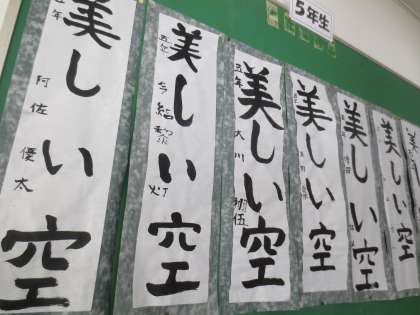 5年生
美しい空
五年 阿佐 優太
美しい空
五年
美しい空
五年 大川
美しい空
美しい空
美しい空
美しい空